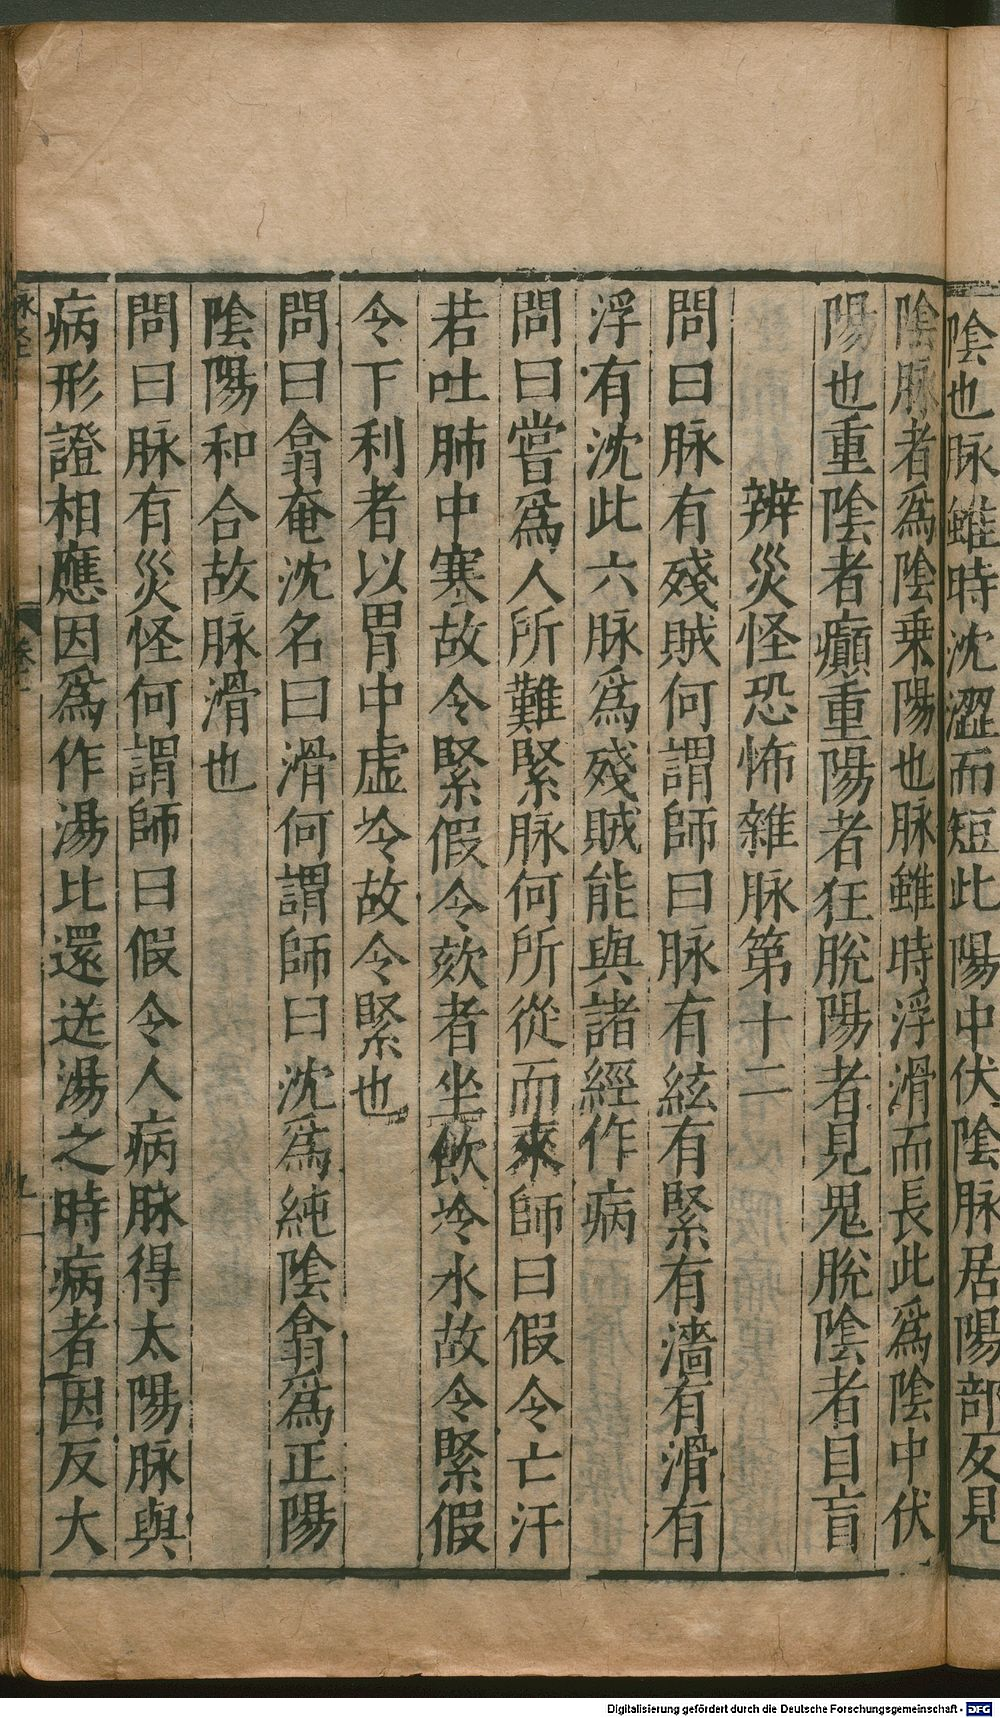 陰也脉雖時沈澀而短此陽中伏陰脉居陽部反見
陰脉者爲陰乗陽也脉雖時浮滑而長此爲陰中伏
陽也重陰者癲重陽者狂脫陽者見鬼脫陰者目盲
辨災怪恐怖雜脉第十二
問曰脉有殘賊何謂師曰脉有絃有緊有濇有滑有
浮有沈此六脉爲殘賊能與諸經作病
問曰嘗爲人所難緊脉何所從而來師曰假令亡汗
若吐肺中寒故令緊假令欬者坐飲冷水故令緊假
令下利者以胃中虛冷故令緊也
問曰翕奄沈名曰滑何謂師曰沈爲純陰翕爲正陽
陰陽和合故脉滑也
問曰脉有災怪何謂師曰假令人病脉得太陽脉與
病形證相應因爲作湯比還送湯之時病者因反大
卷一
九
Digitalisierung gefördert durch die Deutsche Forschungsgemeinschaft - DFG